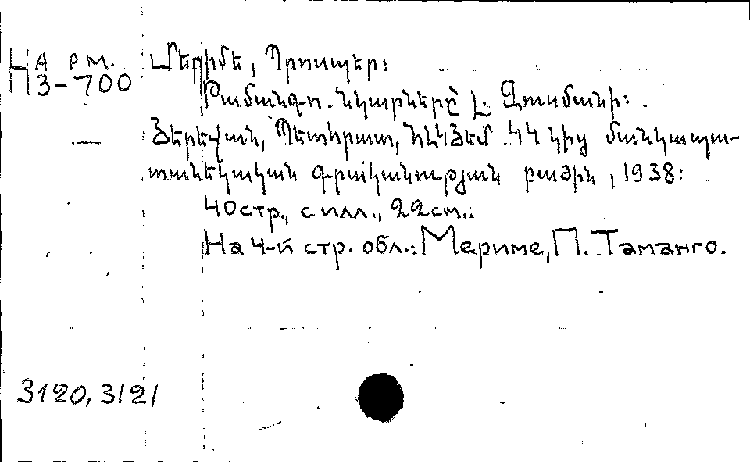 На рм. Մերիմե, Պրոսպեր:
НЗ-700
Թամանգո. նկարները Լ. Գուտմանի:
Յերեվան, Պետհրատ, ՀԿԿՅԵՄ ԿԿ կից մանկապա-
տանեկական գրականության բաժին, 1938:
40стр., с илл., 22см.:
На 4-й стр. обл.: Мериме, П. Таманго.
3120, 3121